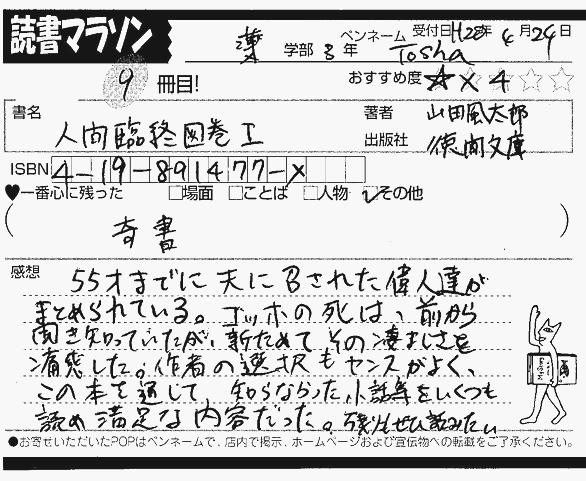 読書マラソン
ペンネーム 受付日H28年4月29日
薬 学部 3年 Tosha
9 冊目!
おすすめ度 ★×4 ☆☆☆☆
書名
人間臨終図巻I
著者 山田風太郎
出版社 徳間文庫
ISBN 4-19-891477-X
♥一番心に残った □場面 □ことば □人物 ☑その他
( 奇書 )
感想
55才までに天に召された偉人達が
まとめられている。ゴッホの死は、前から
聞き知っていたが、新ためてその凄まじさを
痛感した。作者の選択もセンスがよく、
この本を通して、知らなかった小話等をいくつも
読め満足な内容だった。残りもぜひ読みたい
●お寄せいただいたPOPはペンネームで、店内で掲示、ホームページおよび宣伝物への転載をご了承ください。